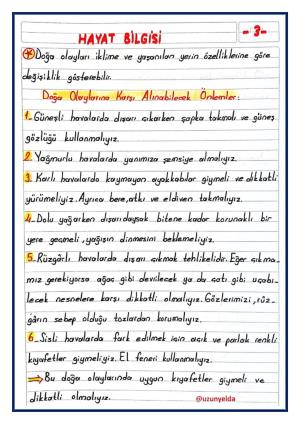 HAYAT BİLGİSİ
- 3 -
* Doğa olayları iklime ve yaşanılan yerin özelliklerine göre
değişiklik gösterebilir.
Doğa Olaylarına Karşı Alınabilecek Önlemler:
1- Güneşli havalarda dışarı çıkarken şapka takmalı ve güneş
gözlüğü kullanmalıyız.
2- Yağmurlu havalarda yanımıza şemsiye almalıyız.
3- Karlı havalarda kaymayan ayakkabılar giymeli ve dikkatli
yürümeliyiz. Ayrıca bere, atkı ve eldiven takmalıyız.
4- Dolu yağarken dışarıdaysak bitene kadar korunaklı bir
yere geçmeli, yağışın dinmesini beklemeliyiz.
5- Rüzgârlı havalarda dışarı çıkmak tehlikelidir. Eğer çıkma-
mız gerekiyorsa ağaç gibi devrilecek ya da çatı gibi uçabi-
lecek nesnelere karşı dikkatli olmalıyız. Gözlerimizi, rüz-
gârın sebep olduğu tozlardan korumalıyız.
6- Sisli havalarda fark edilmek için açık ve parlak renkli
kıyafetler giymeliyiz. El feneri kullanmalıyız.
⇒ Bu doğa olaylarında uygun kıyafetler giymeli ve
dikkatli olmalıyız.
@uzunyelda